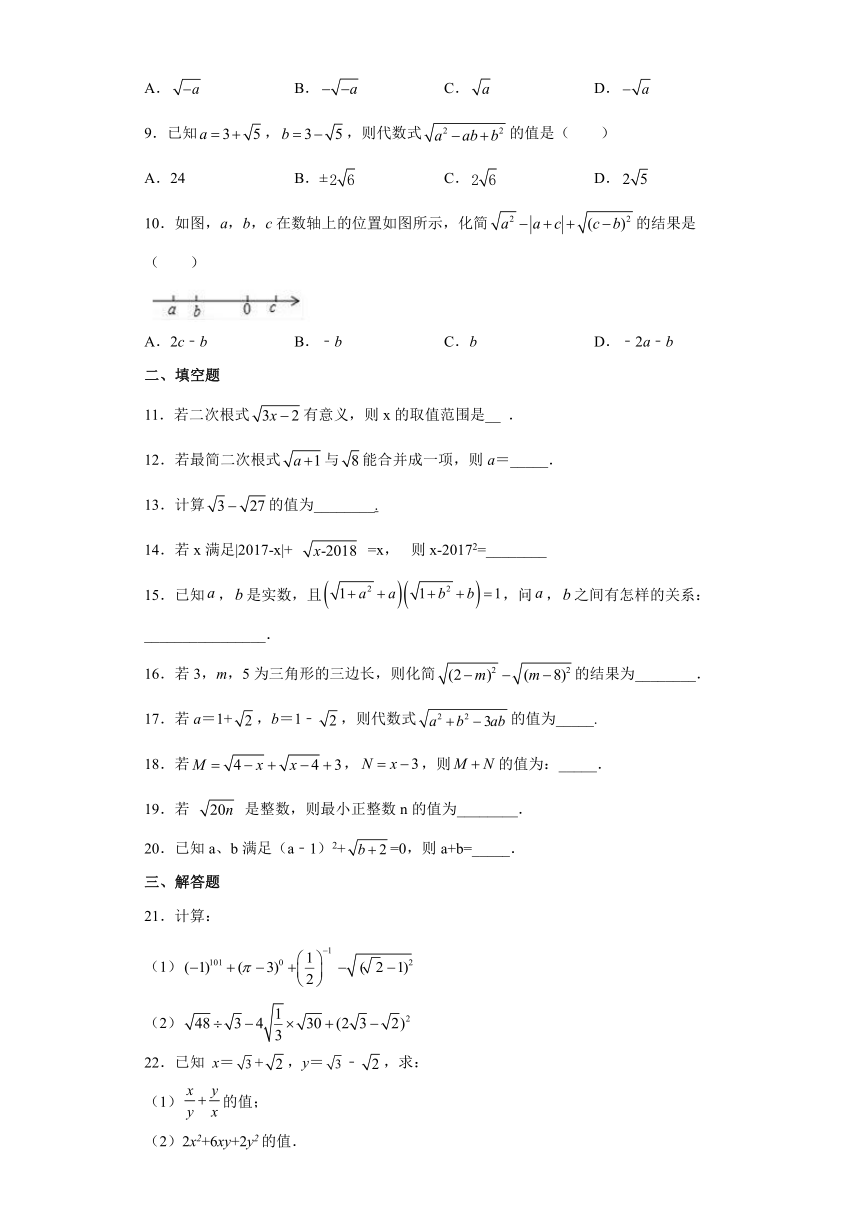 A．√(−a) B．−√(−a) C．√a D．−√a
9．已知 a=3+√5，b=3−√5，则代数式 √(a²−ab+b²) 的值是（ ）
A．24 B．±2√6 C．2√6 D．2√5
10．如图，a，b，c 在数轴上的位置如图所示，化简 √(a²)−|a+c|+√((c−b)²) 的结果是
（ ）
a b 0 c
A．2c﹣b B．﹣b C．b D．﹣2a﹣b
二、填空题
11．若二次根式 √(3x−2) 有意义，则 x 的取值范围是__ ．
12．若最简二次根式 √(a+1) 与 √8 能合并成一项，则 a＝_____．
13．计算 √3−√27 的值为________.
14．若 x 满足|2017-x|+ √(x-2018) =x， 则 x-2017²=________
15．已知 a，b 是实数，且(√(1+a²)+a)(√(1+b²)+b)=1，问 a，b 之间有怎样的关系：
________________．
16．若 3，m，5 为三角形的三边长，则化简 √((2−m)²)−√((m−8)²) 的结果为________．
17．若 a＝1+√2，b＝1﹣√2，则代数式 √(a²+b²−3ab) 的值为_____．
18．若 M=√(4−x)+√(x−4)+3，N=x−3，则 M+N 的值为：_____．
19．若 √(20n) 是整数，则最小正整数 n 的值为________．
20．已知 a、b 满足（a﹣1）²+√(b+2)=0，则 a+b=_____．
三、解答题
21．计算：
（1）(−1)¹⁰¹+(π−3)⁰+(1/2)⁻¹−√((√2−1)²)
（2）√48÷√3−4√(1/3)×√30+(2√3−√2)²
22．已知 x＝√3+√2，y＝√3﹣√2，求：
（1）x/y+y/x 的值；
（2）2x²+6xy+2y² 的值．